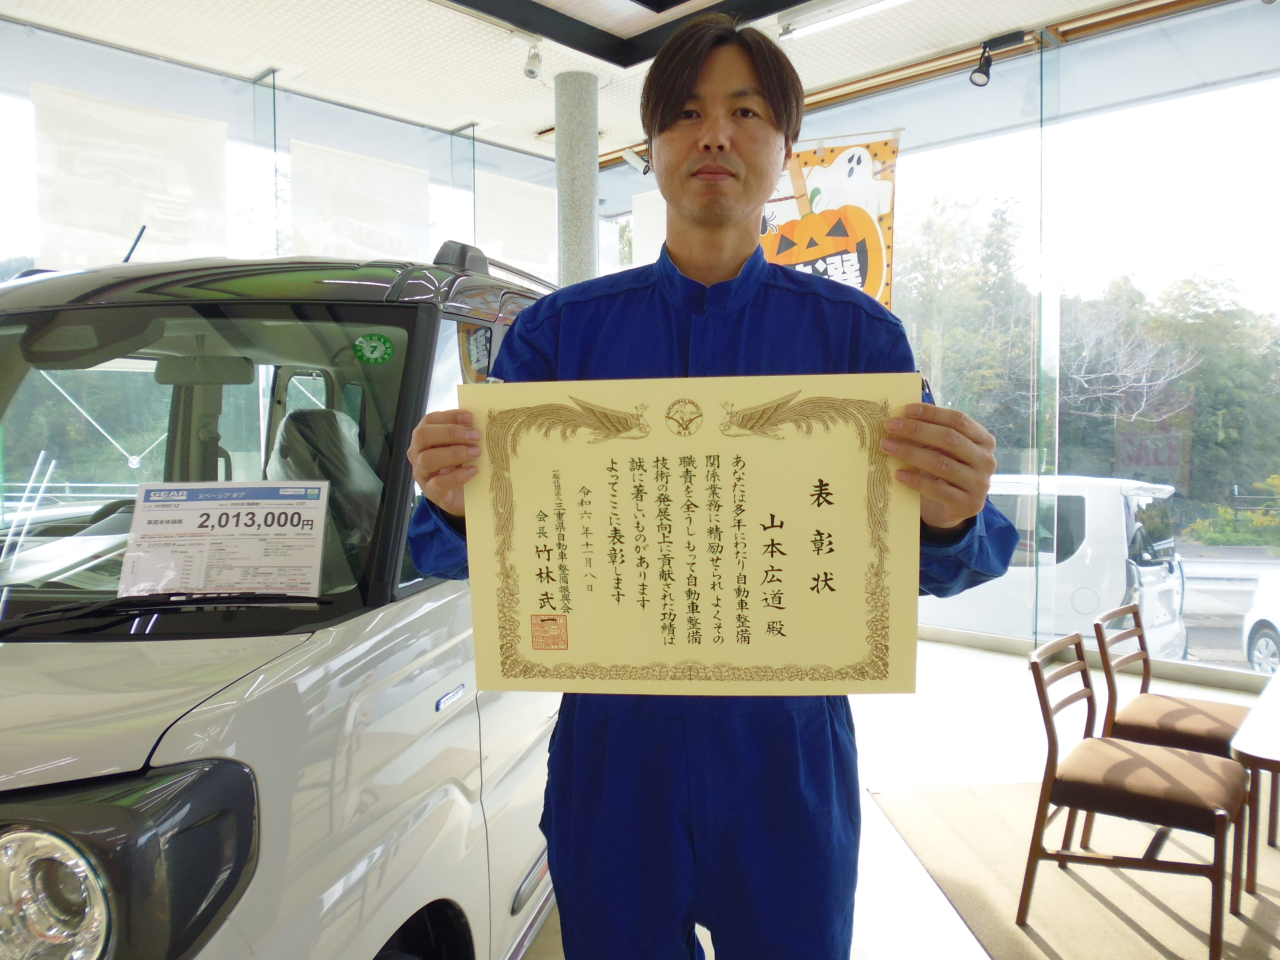 表彰状
山本広道 殿
あなたは多年にわたり自動車整備
関係業務に精励せられ よくその
職責を全うし もって自動車整備
技術の発展向上に貢献された功績は
誠に著しいものがあります
よってここに表彰します
令和六年十一月八日
一般社団法人三重県自動車整備振興会
会長 竹林武一
GEAR
スペーシア ギア
車両本体価格 2,013,000円
7
選